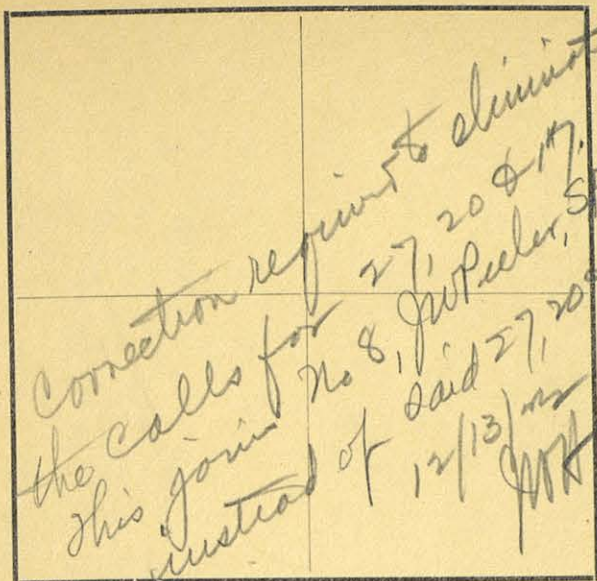 Correction required to eliminat
the calls for 27, 20 & 17.
This joins No 8, JW Peeler, SF
instead of said 27, 20 &
12/13/